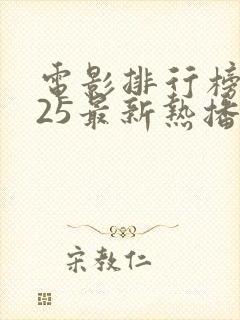 電影排行榜
25最新熱播
宋教仁